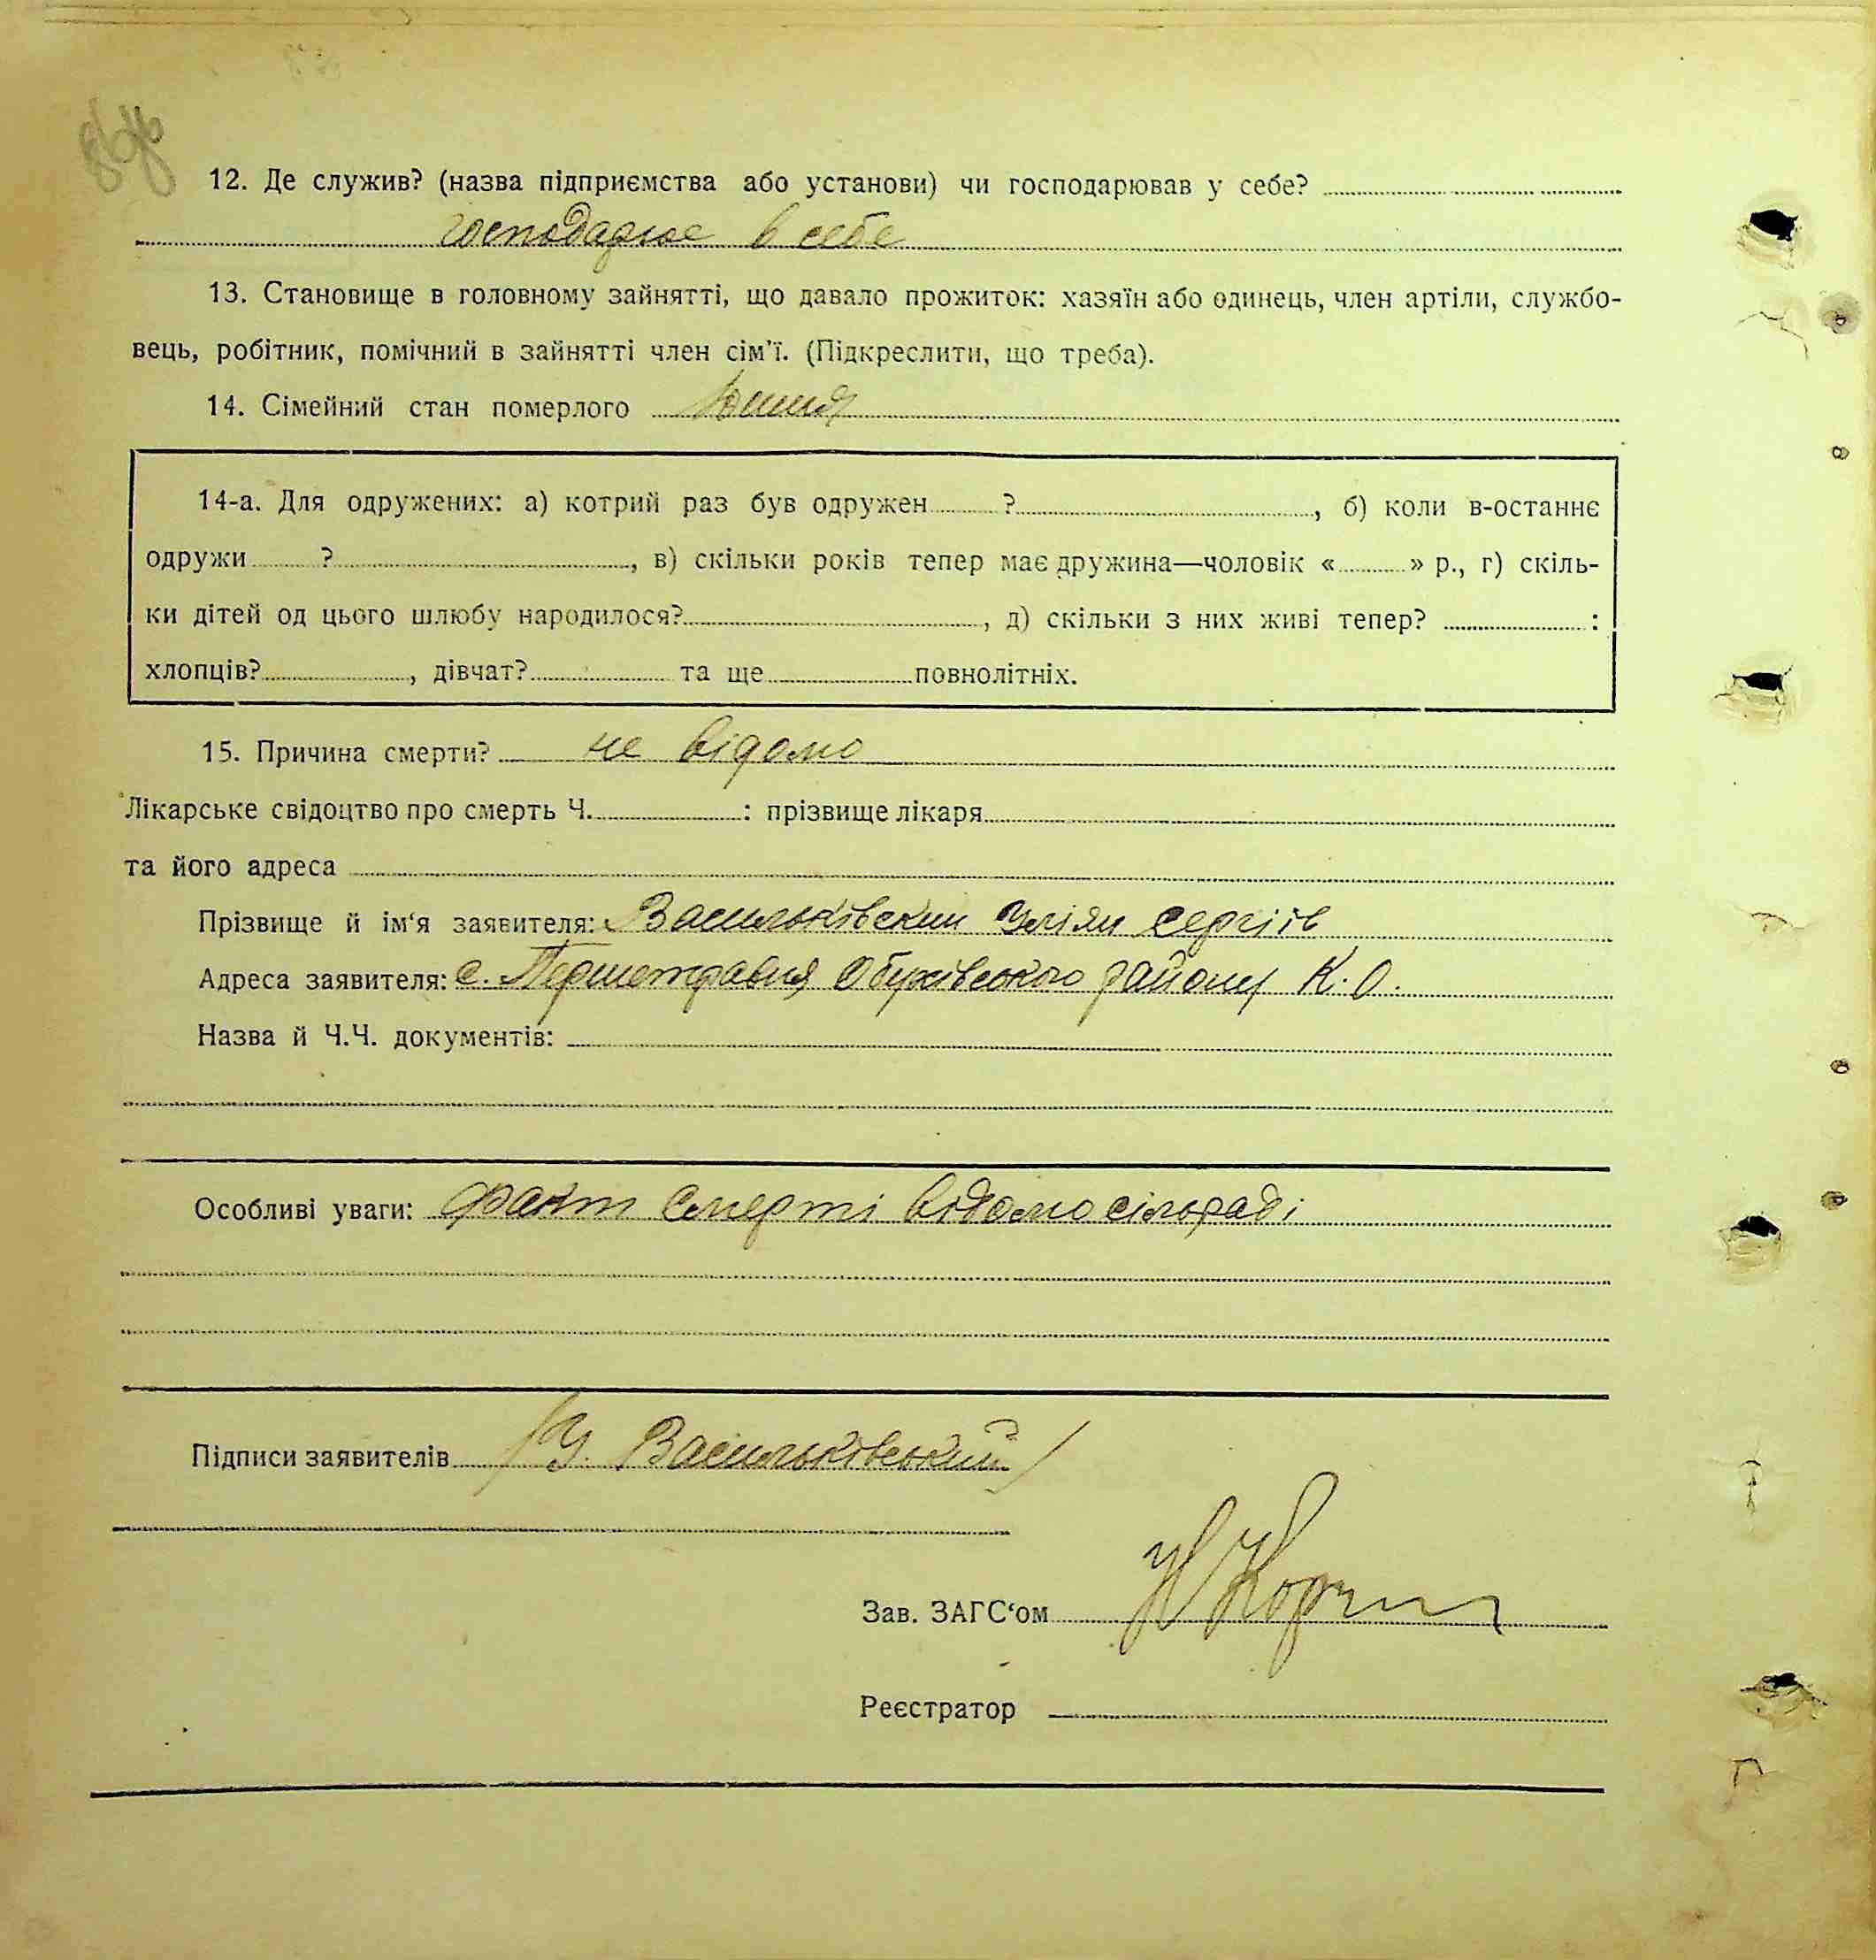 12. Де служив? (назва підприємства або установи) чи господарював у себе?
господарює в себе
13. Становище в головному зайнятті, що давало прожиток: хазяїн або одинець, член артіли, службо-
вець, робітник, помічний в зайнятті член сім'ї. (Підкреслити, що треба).
14. Сімейний стан померлого
14-а. Для одружених: а) котрий раз був одружен ? , б) коли в-останнє
одружи ? , в) скільки років тепер має дружина—чоловік « » р., г) скіль-
ки дітей од цього шлюбу народилося? , д) скільки з них живі тепер? :
хлопців? , дівчат? та ще повнолітніх.
15. Причина смерти? не відомо
Лікарське свідоцтво про смерть Ч. : прізвище лікаря
та його адреса
Прізвище й ім'я заявителя: Васильківский Уліян Сергіїв
Адреса заявителя: с. Перметравня Обухівського району К. О.
Назва й Ч.Ч. документів:
Особливі уваги: Факт смерті відомо сільраді
Підписи заявителів /У. Васильківський/
Зав. ЗАГС'ом
Реєстратор